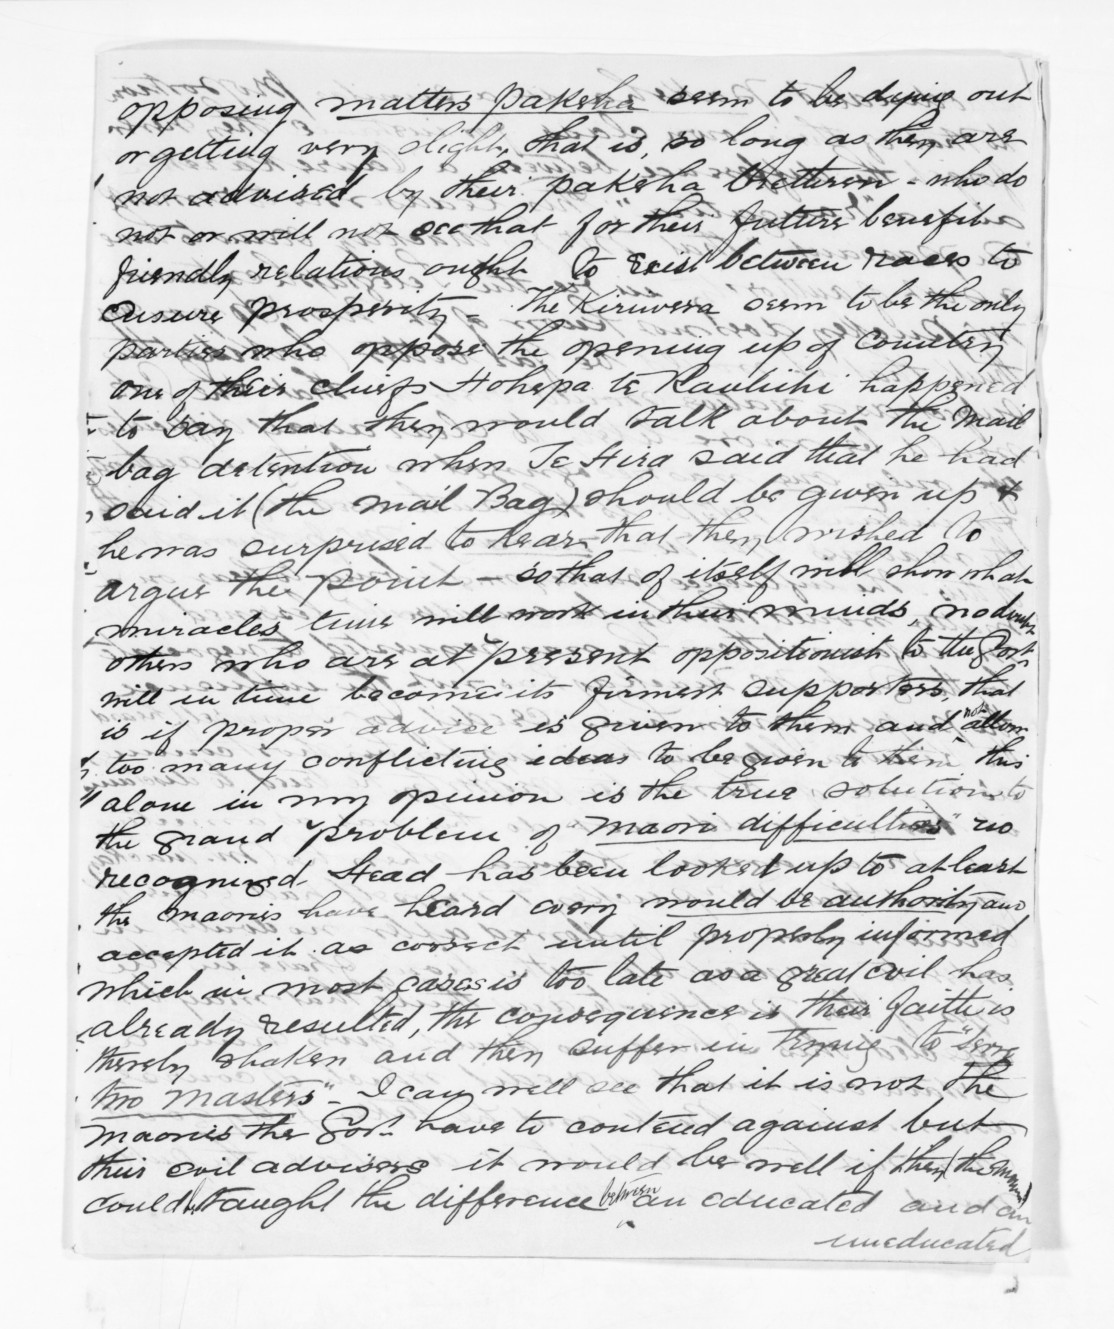 opposing matters pakeha seem to be dying out
or getting very slight, that is, so long as they are
not advised by their pakeha bretheren - who do
not or will not see that for their future benefit
friendly relations ought to exist between races to
ensure prosperity - The Kiriwera seem to be the only
parties who oppose the opening up of country
one of their chiefs Hohepa te Rauhihi happened
to say that they would talk about the mail
bag detention when Te Hira said that he had
said it (the mail Bag) should be given up &
he was surprised to hear that they wished to
argue the point - so that of itself will show what
miracles time will work in their minds, no doubt
others who are at present oppositionist to the Govt
will in time become its firmest supporters, that
is if proper advice is given to them and not allow
too many conflicting ideas to be given to them this
alone in my opinion is the true solution to
the grand problem of "Maori difficulties" no
recognized Head has been looked up to at least
the maories have heard every would be authority and
accepted it as correct until properly informed
which in most cases is too late as a great evil has
already resulted, the consequence is their faith is
thereby shaken and they suffer in trying to "serve
two masters" - I can well see that it is not the
Maories the Govt. have to contend against but
their evil advisers it would be well if they (the
could be taught the difference between an educated and an
uneducated